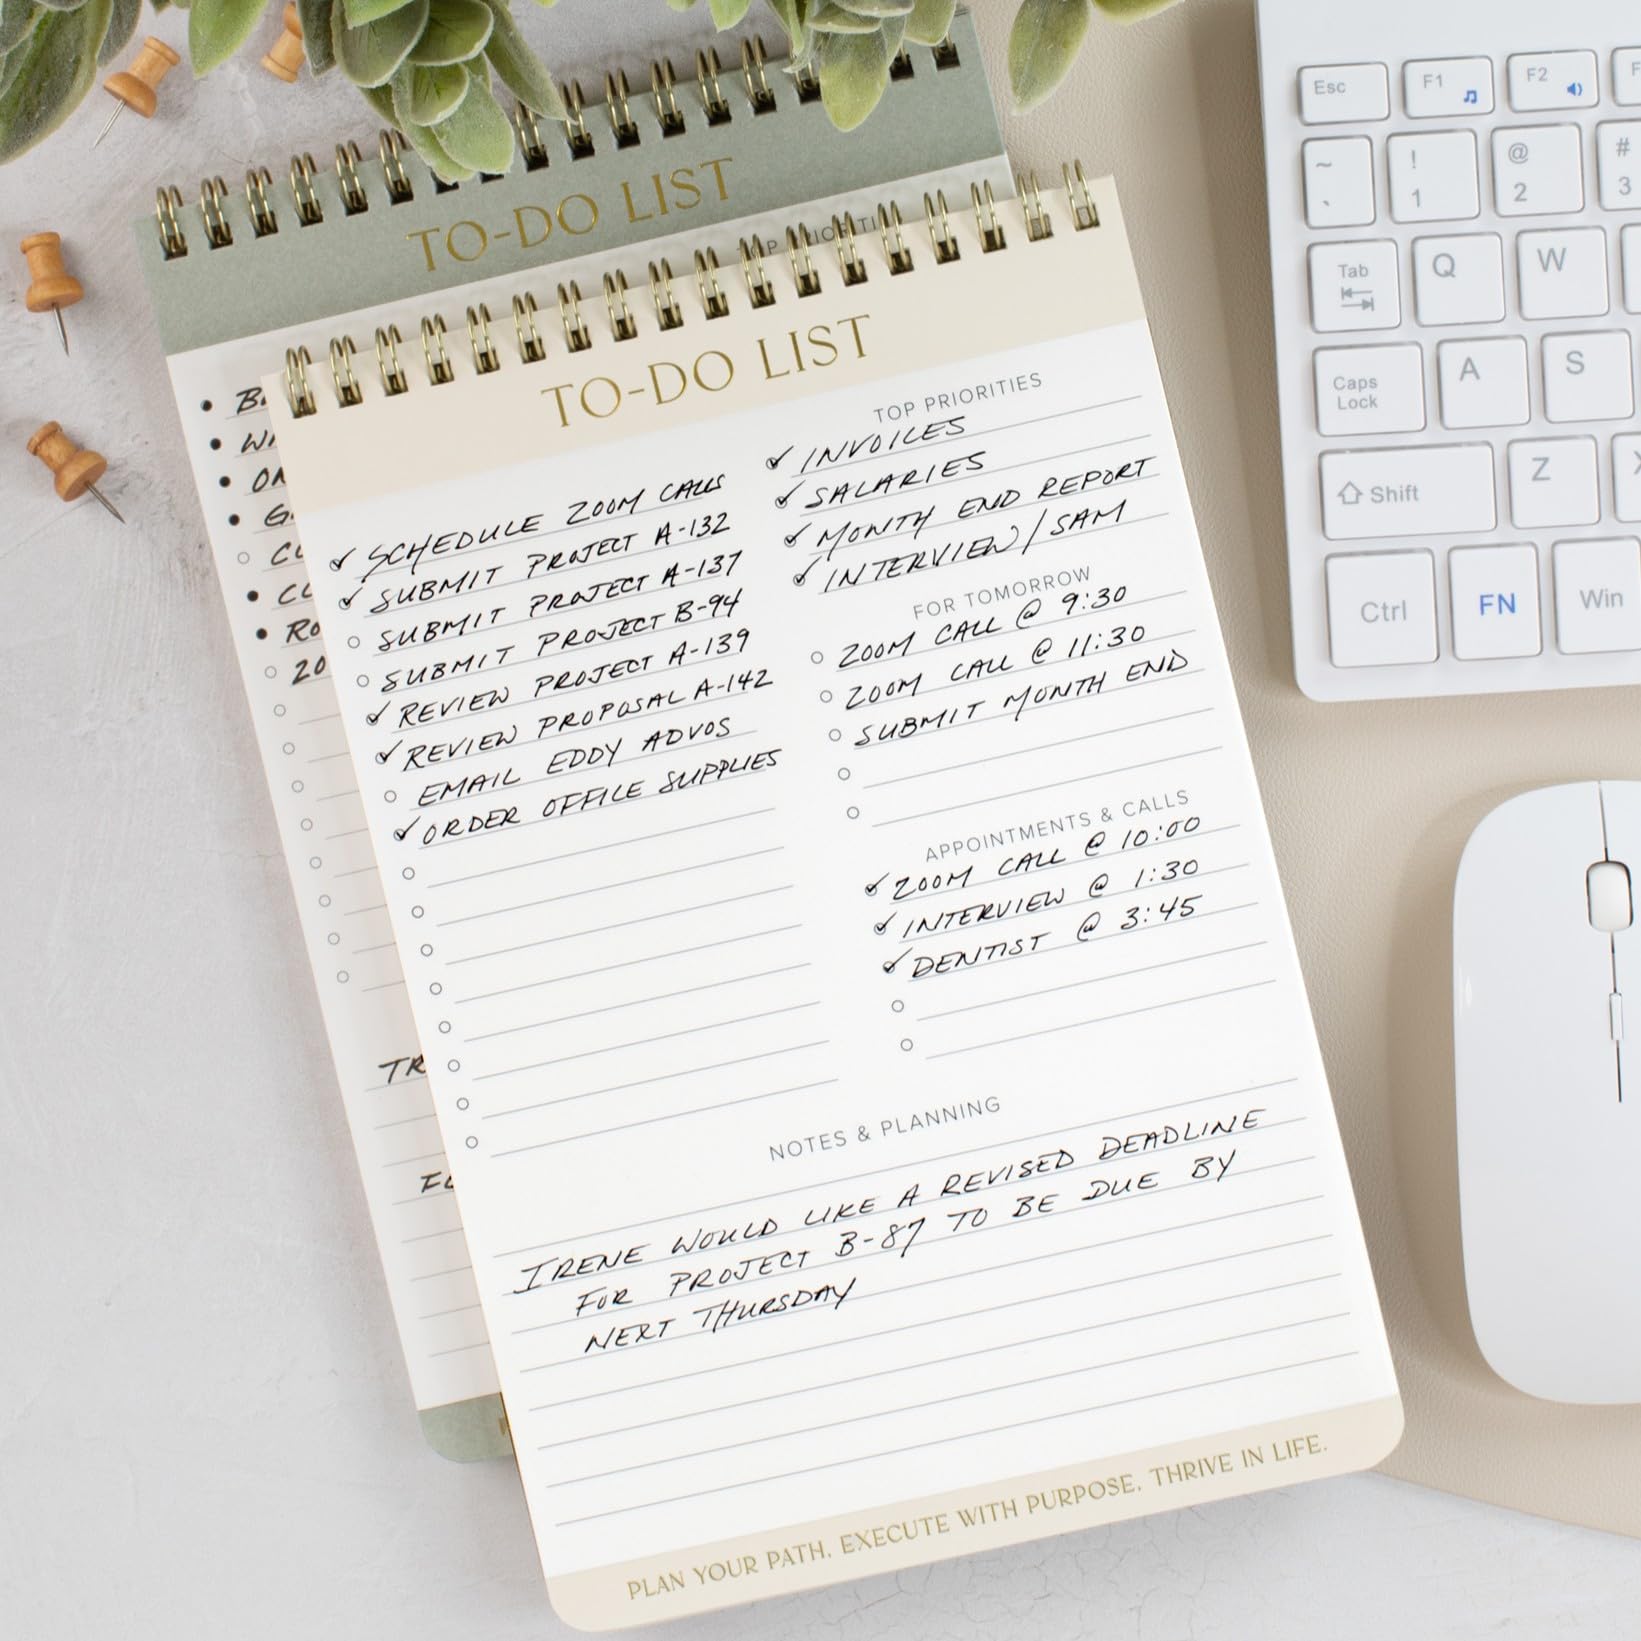 TO-DO LIST
TO-DO LIST
SCHEDULE ZOOM CALLS
SUBMIT PROJECT A-132
SUBMIT PROJECT A-137
SUBMIT PROJECT B-94
REVIEW PROJECT A-139
REVIEW PROPOSAL A-142
EMAIL EDDY ADVOS
ORDER OFFICE SUPPLIES
TOP PRIORITIES
INVOICES
SALARIES
MONTH END REPORT
INTERVIEW/SAM
FOR TOMORROW
ZOOM CALL @ 9:30
ZOOM CALL @ 11:30
SUBMIT MONTH END
APPOINTMENTS & CALLS
ZOOM CALL @ 10:00
INTERVIEW @ 1:30
DENTIST @ 3:45
NOTES & PLANNING
IRENE WOULD LIKE A REVISED DEADLINE
FOR PROJECT B-87 TO BE DUE BY
NEXT THURSDAY
PLAN YOUR PATH. EXECUTE WITH PURPOSE. THRIVE IN LIFE.
Esc F1 F2
~ ` ! 1 @ 2 # 3
Tab Q W
Caps Lock A S
Shift Z
Ctrl FN Win